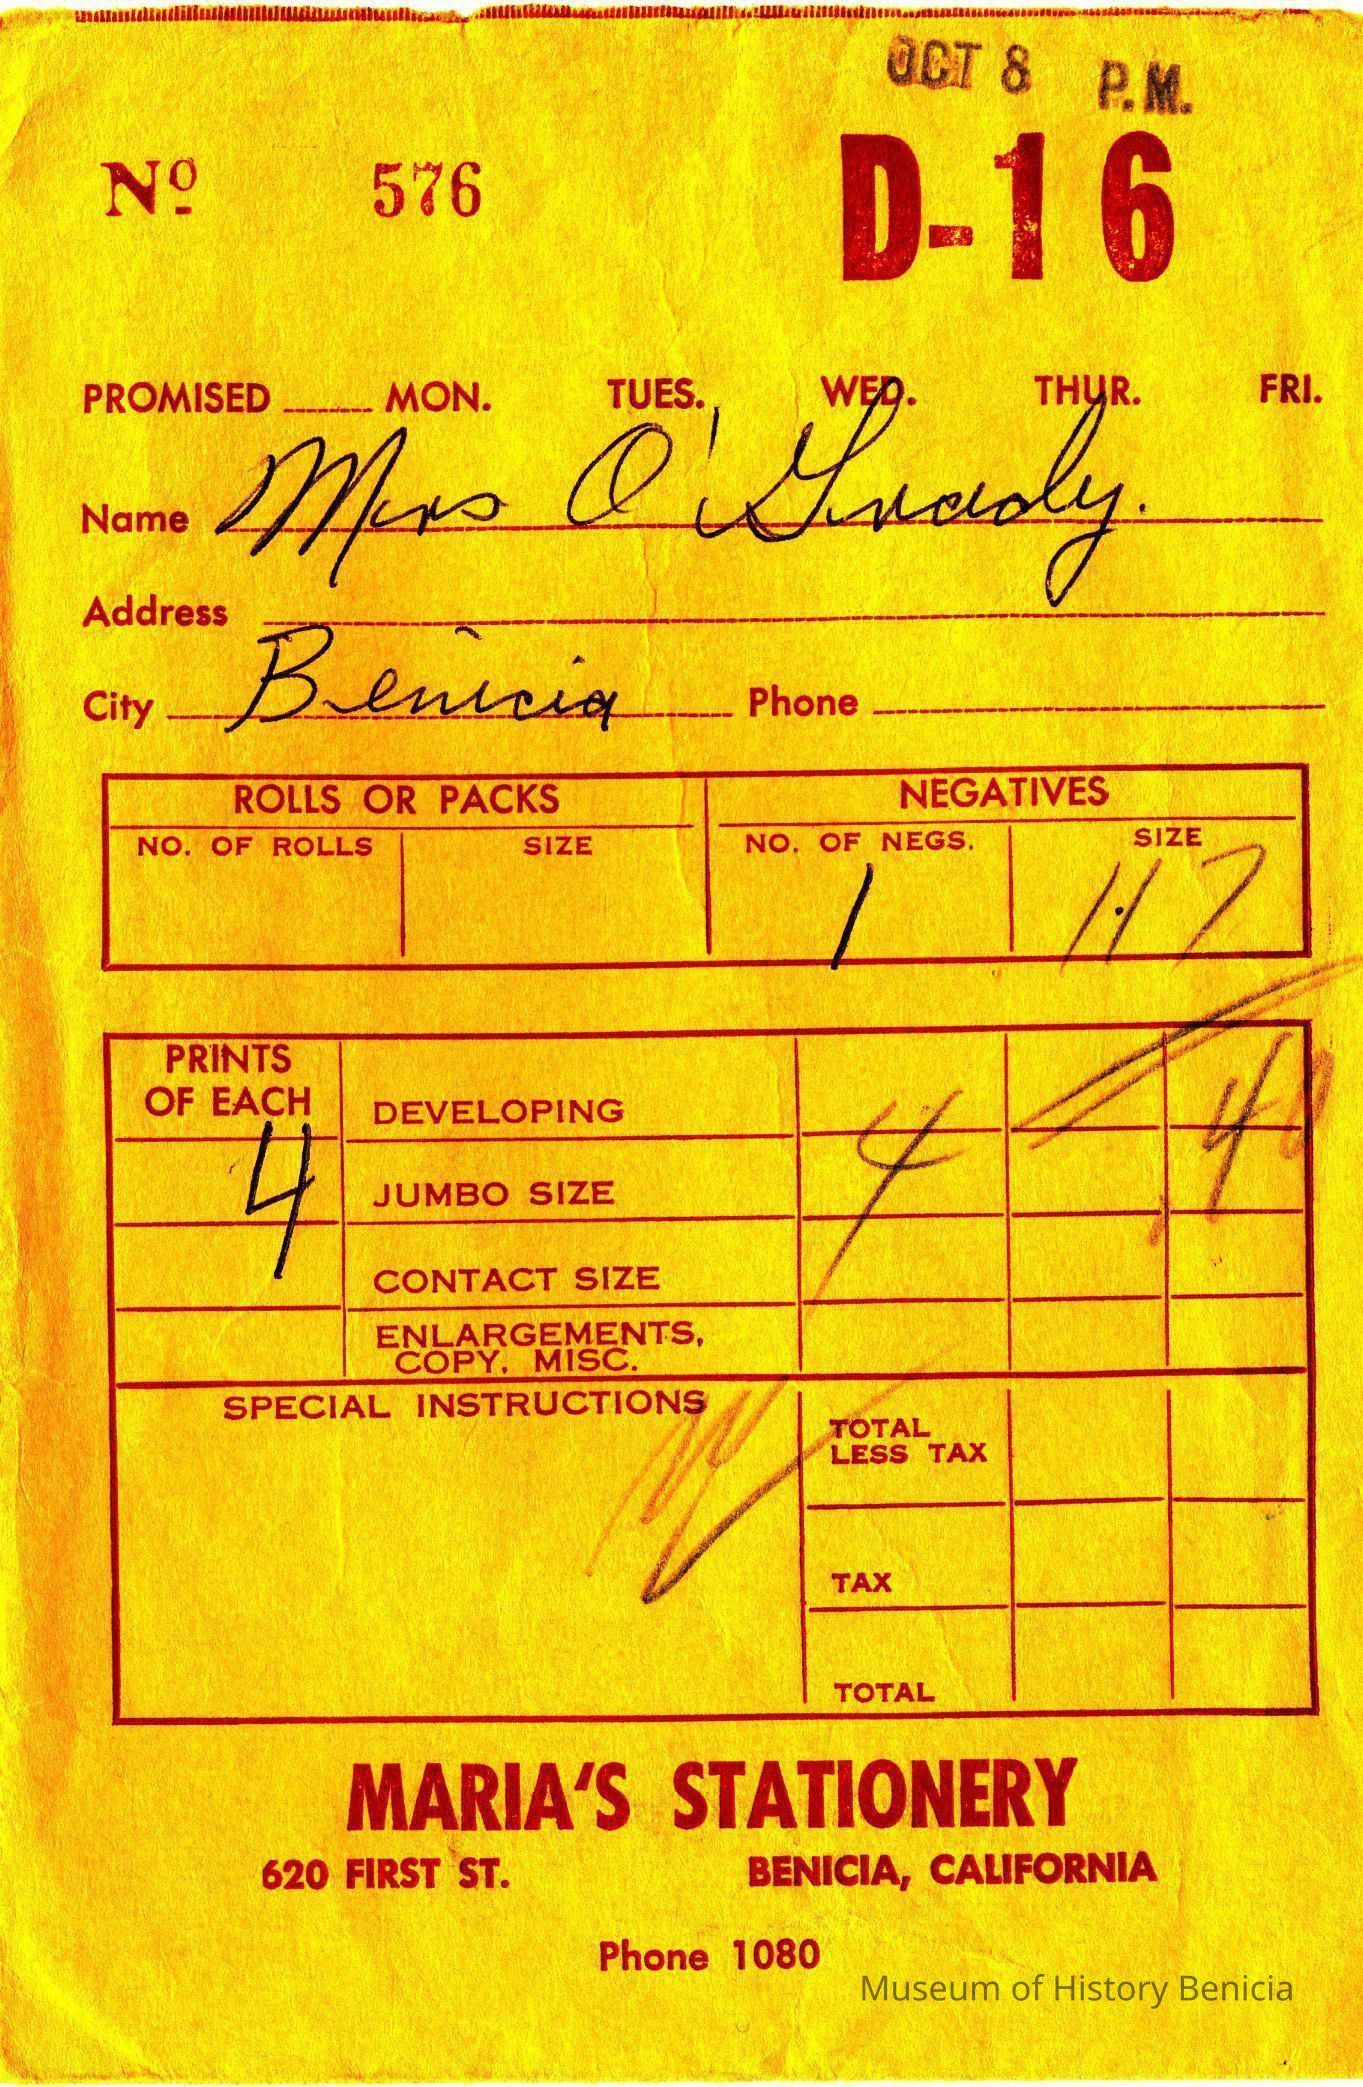 OCT 8 P.M.
Nº 576
D-16
PROMISED MON. TUES. WED. THUR. FRI.
Name Mrs O'Grady.
Address
City Benicia Phone
ROLLS OR PACKS NEGATIVES
NO. OF ROLLS SIZE NO. OF NEGS. SIZE
1
PRINTS OF EACH
DEVELOPING
4 JUMBO SIZE 4 40
CONTACT SIZE
ENLARGEMENTS,
COPY. MISC.
SPECIAL INSTRUCTIONS
TOTAL
LESS TAX
TAX
TOTAL
MARIA'S STATIONERY
620 FIRST ST. BENICIA, CALIFORNIA
Phone 1080
Museum of History Benicia